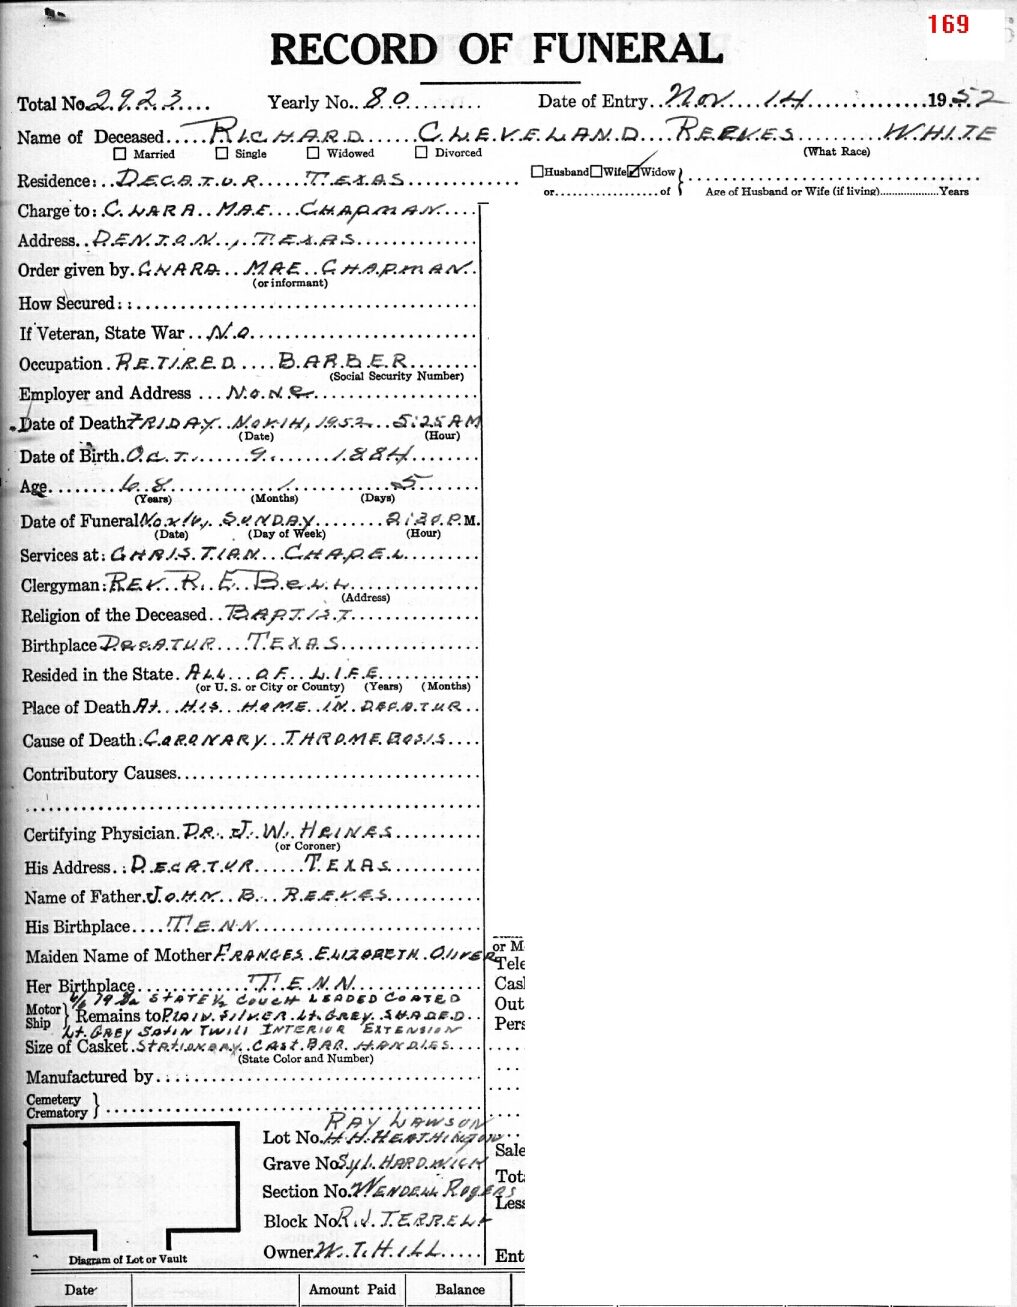 169
RECORD OF FUNERAL
Total No. 2923 Yearly No. 80 Date of Entry Nov 14 1952
Name of Deceased RICHARD CLEVELAND REEVES WHITE
☐ Married ☐ Single ☐ Widowed ☐ Divorced (What Race)
Residence: DECATUR TEXAS ☐Husband ☐Wife ☑Widow
or of Age of Husband or Wife (if living) Years
Charge to: CLARA MAE CHAPMAN
Address DENTON, TEXAS
Order given by CLARA MAE CHAPMAN
(or informant)
How Secured:
If Veteran, State War NO
Occupation RETIRED BARBER
(Social Security Number)
Employer and Address NONE
Date of Death FRIDAY NOV 14, 1952 5:25 AM
(Date) (Hour)
Date of Birth OCT. 9, 1884
Age 68 1 5
(Years) (Months) (Days)
Date of Funeral Nov 16, SUNDAY 2:30 P.M.
(Date) (Day of Week) (Hour)
Services at: CHRISTIAN CHAPEL
Clergyman: REV. R. E. BELL
(Address)
Religion of the Deceased BAPTIST
Birthplace DECATUR TEXAS
Resided in the State ALL OF LIFE
(or U. S. or City or County) (Years) (Months)
Place of Death At HIS HOME IN DECATUR
Cause of Death CORONARY THROMEBOSIS
Contributory Causes
Certifying Physician DR. J. W. HEINES
(or Coroner)
His Address DECATUR TEXAS
Name of Father JOHN B. REEVES
His Birthplace TENN
Maiden Name of Mother FRANCES ELIZABETH OLIVER
or M
Tele
Her Birthplace TENN
Cas
6/6 79 STATE COUCH LEADED COATED
Out
Motor Ship } Remains to PLAIN SILVER LT. GREY SHADED
Pers
LT. GREY SATIN TWILL INTERIOR EXTENSION
Size of Casket STATIONARY CAST BAR HANDLES
(State Color and Number)
Manufactured by
Cemetery
Crematory }
RAY LAWSON
Lot No. H. H. HEATHINGTON
Sale
Grave No. SYL HARDWICK
Tot
Section No. WENDELL ROGERS
Less
Block No. R. J. TERRELL
Owner W. T. HILL
Ent
Diagram of Lot or Vault
Date Amount Paid Balance